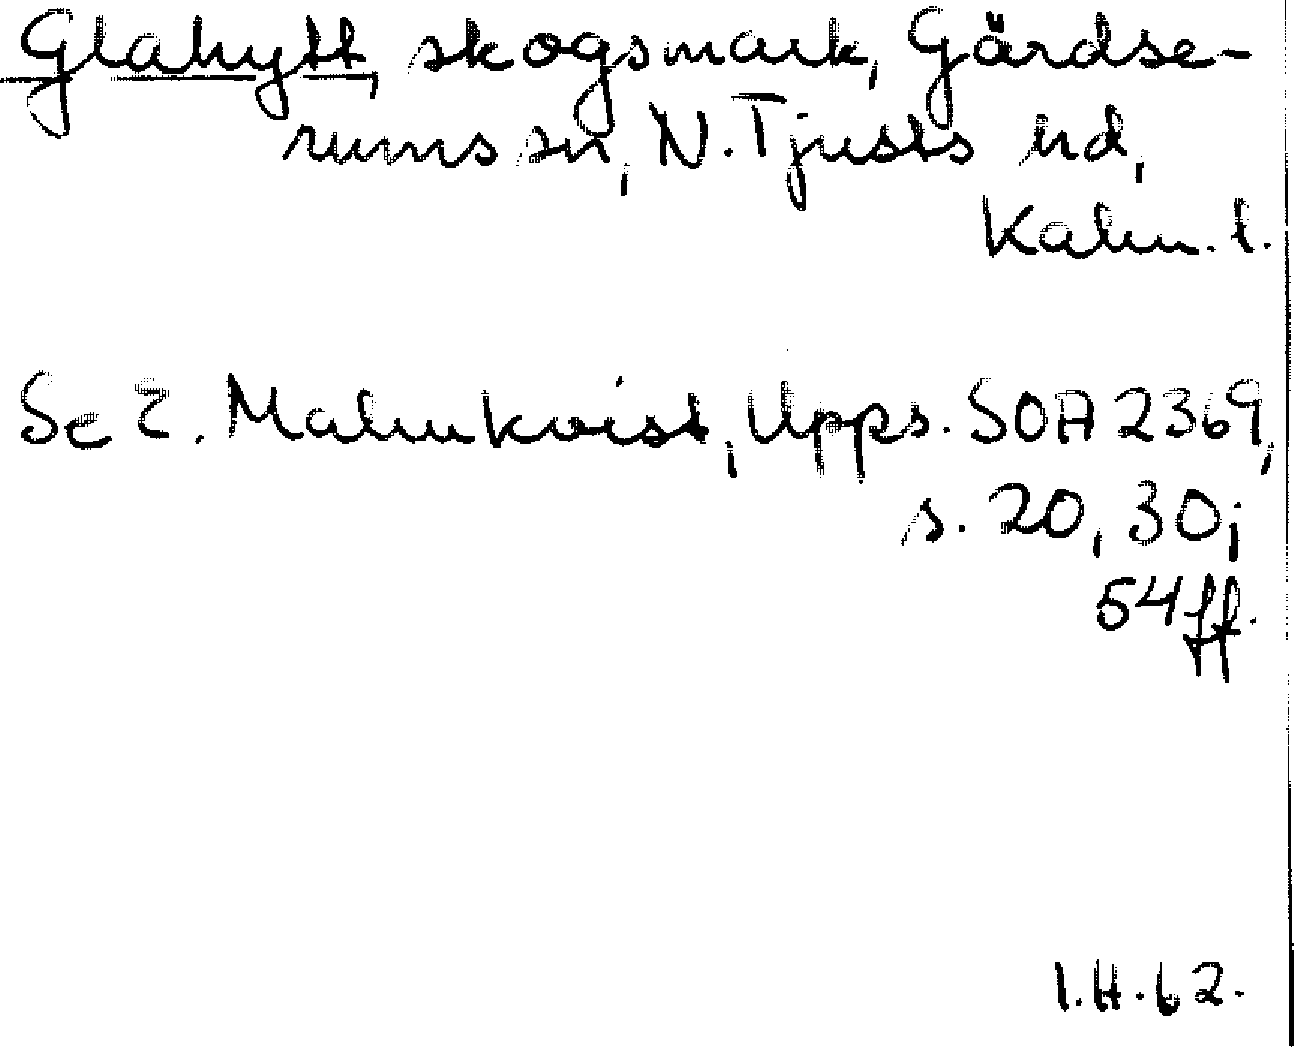 Glahytt, skogsmark, Gärdse-
rums sn, N. Tjusts hd,
Kalm. l.
Se E. Malmkvist, Upps. SOA 2369,
s. 20, 30;
54 ff.
I.H. 62.